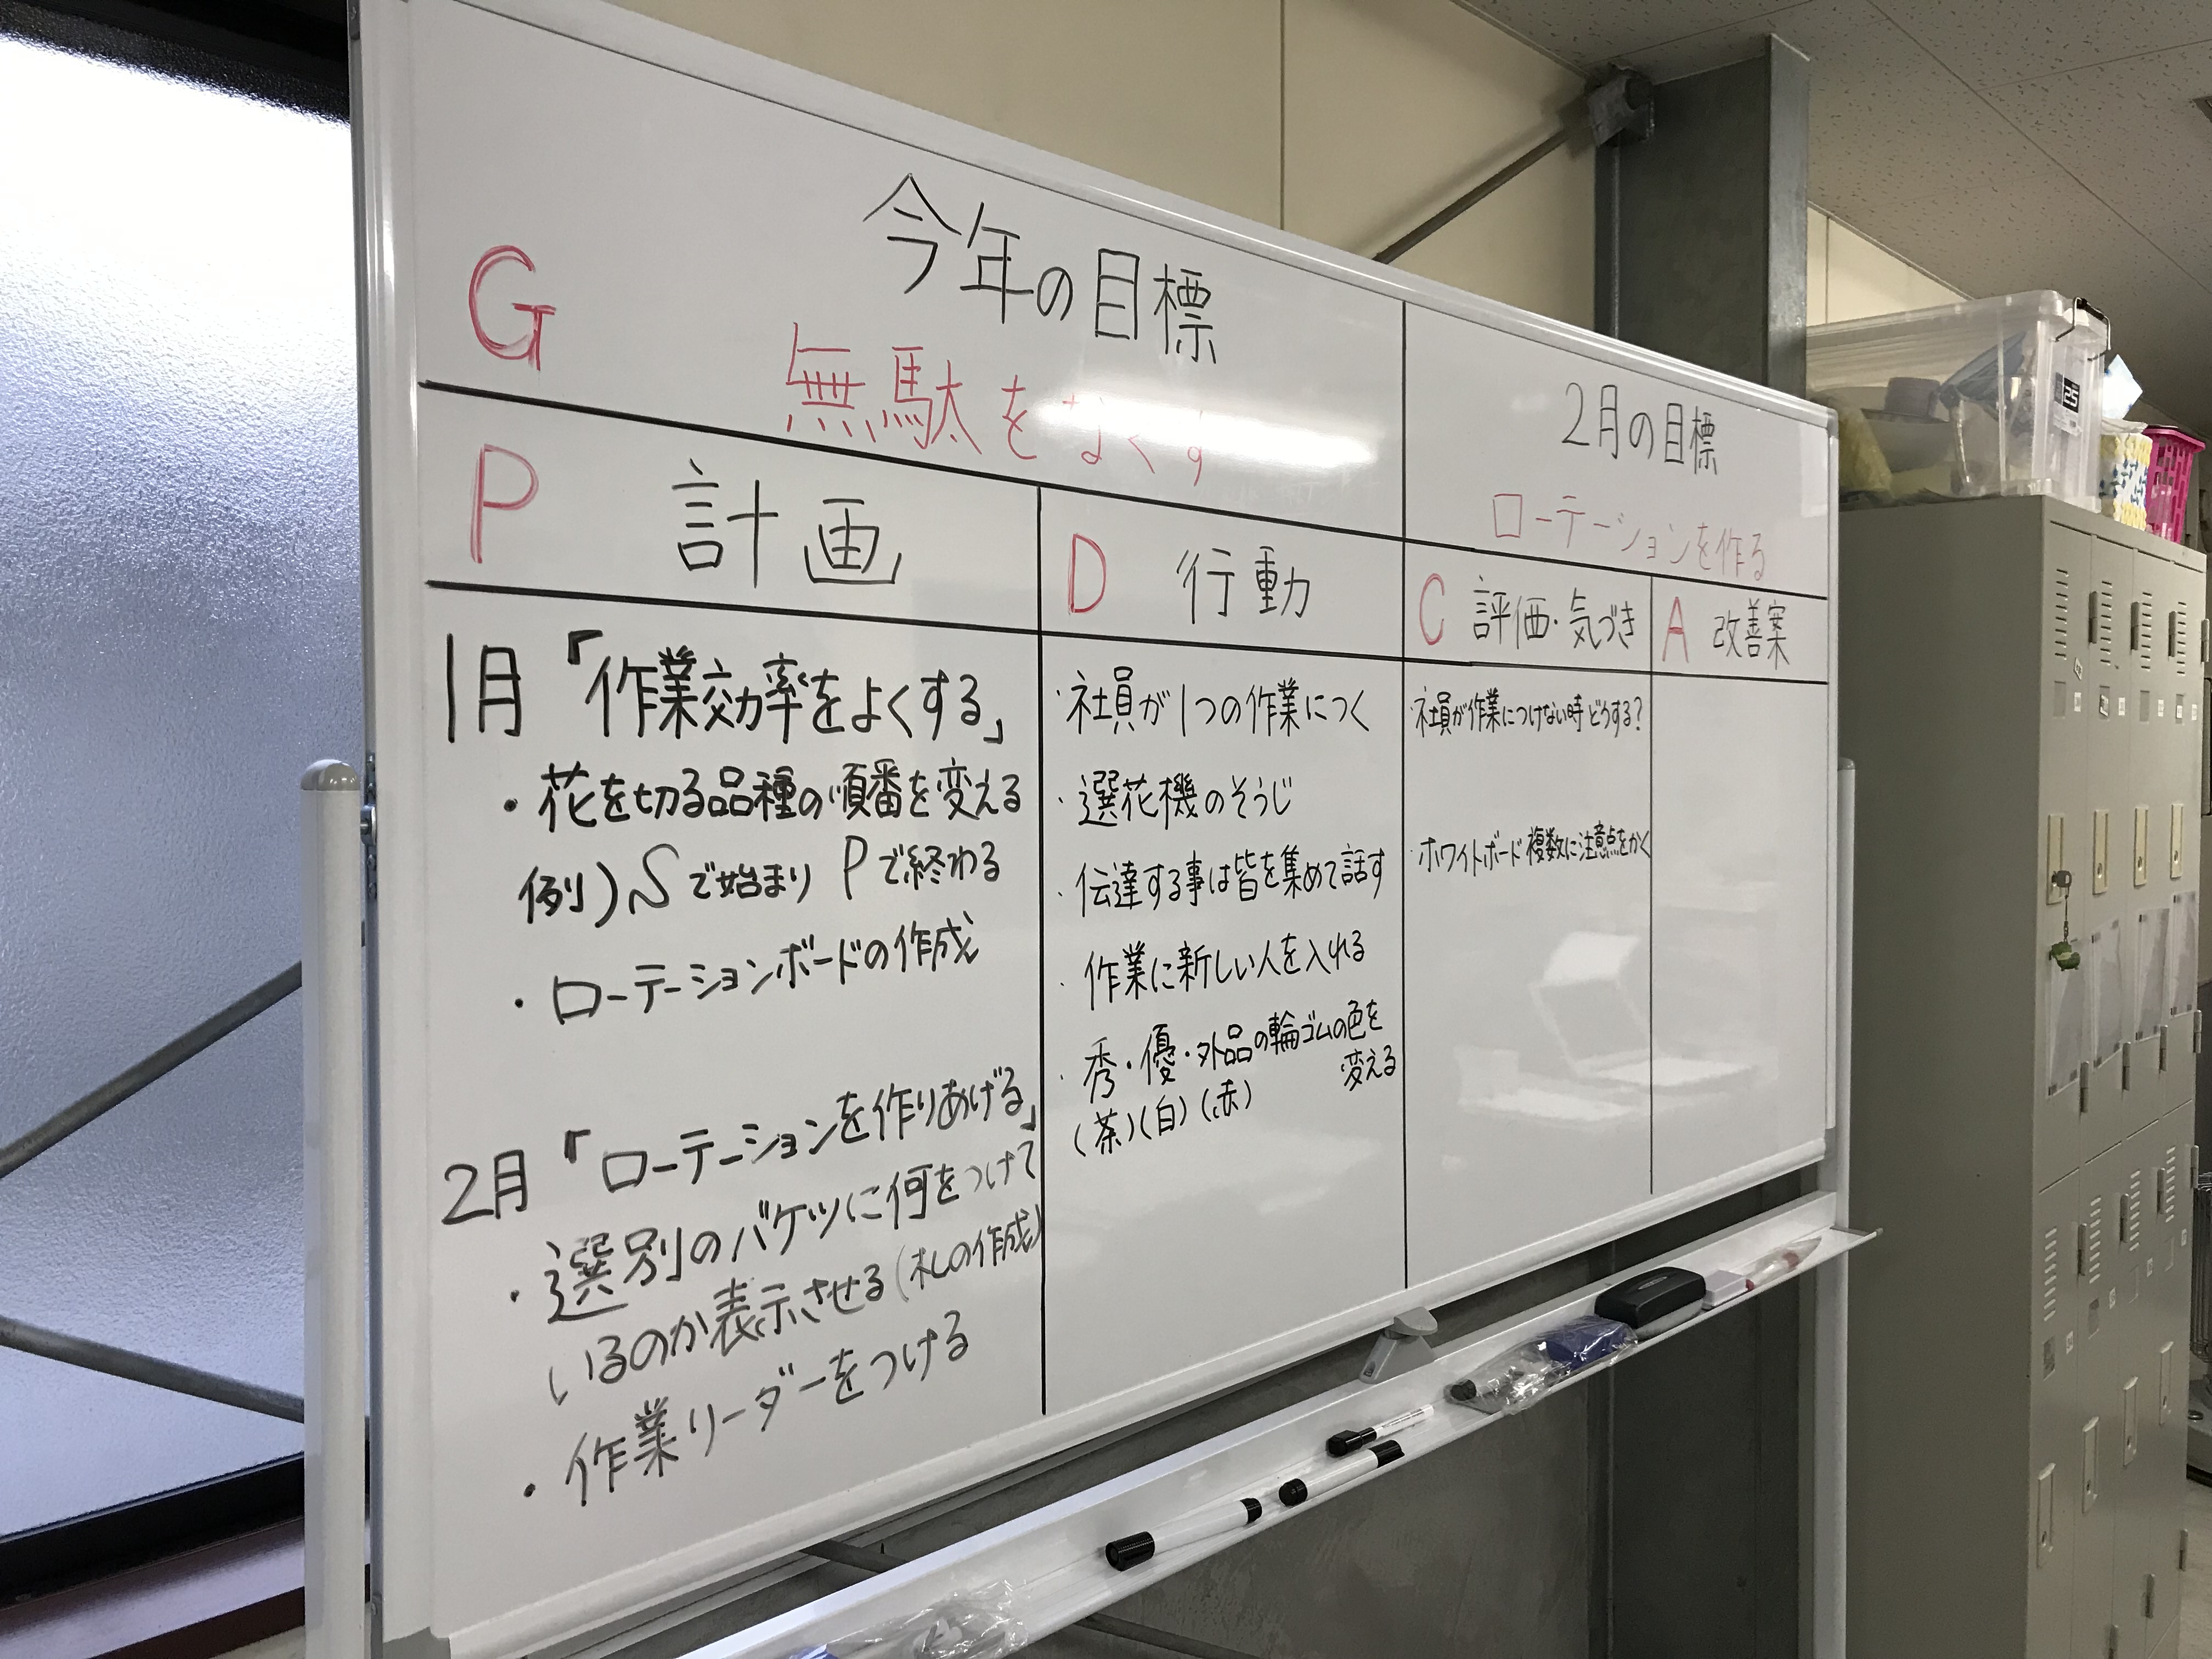 G
今年の目標
無駄をなくす
2月の目標
ローテーションを作る
P 計画
1月「作業効率をよくする」
・花を切る品種の順番を変える
例)Sで始まりPで終わる
・ローテーションボードの作成
2月「ローテーションを作りあげる」
・選別のバケツに何をつけて
いるのか表示させる(札の作成)
・作業リーダーをつける
D 行動
・社員が1つの作業につく
・選花機のそうじ
・伝達する事は皆を集めて話す
・作業に新しい人を入れる
・秀・優・外品の輪ゴムの色を
変える
(茶)(白)(赤)
C 評価・気づき
・社員が作業につけない時どうする?
・ホワイトボード複数に注意点をかく
A 改善案
25